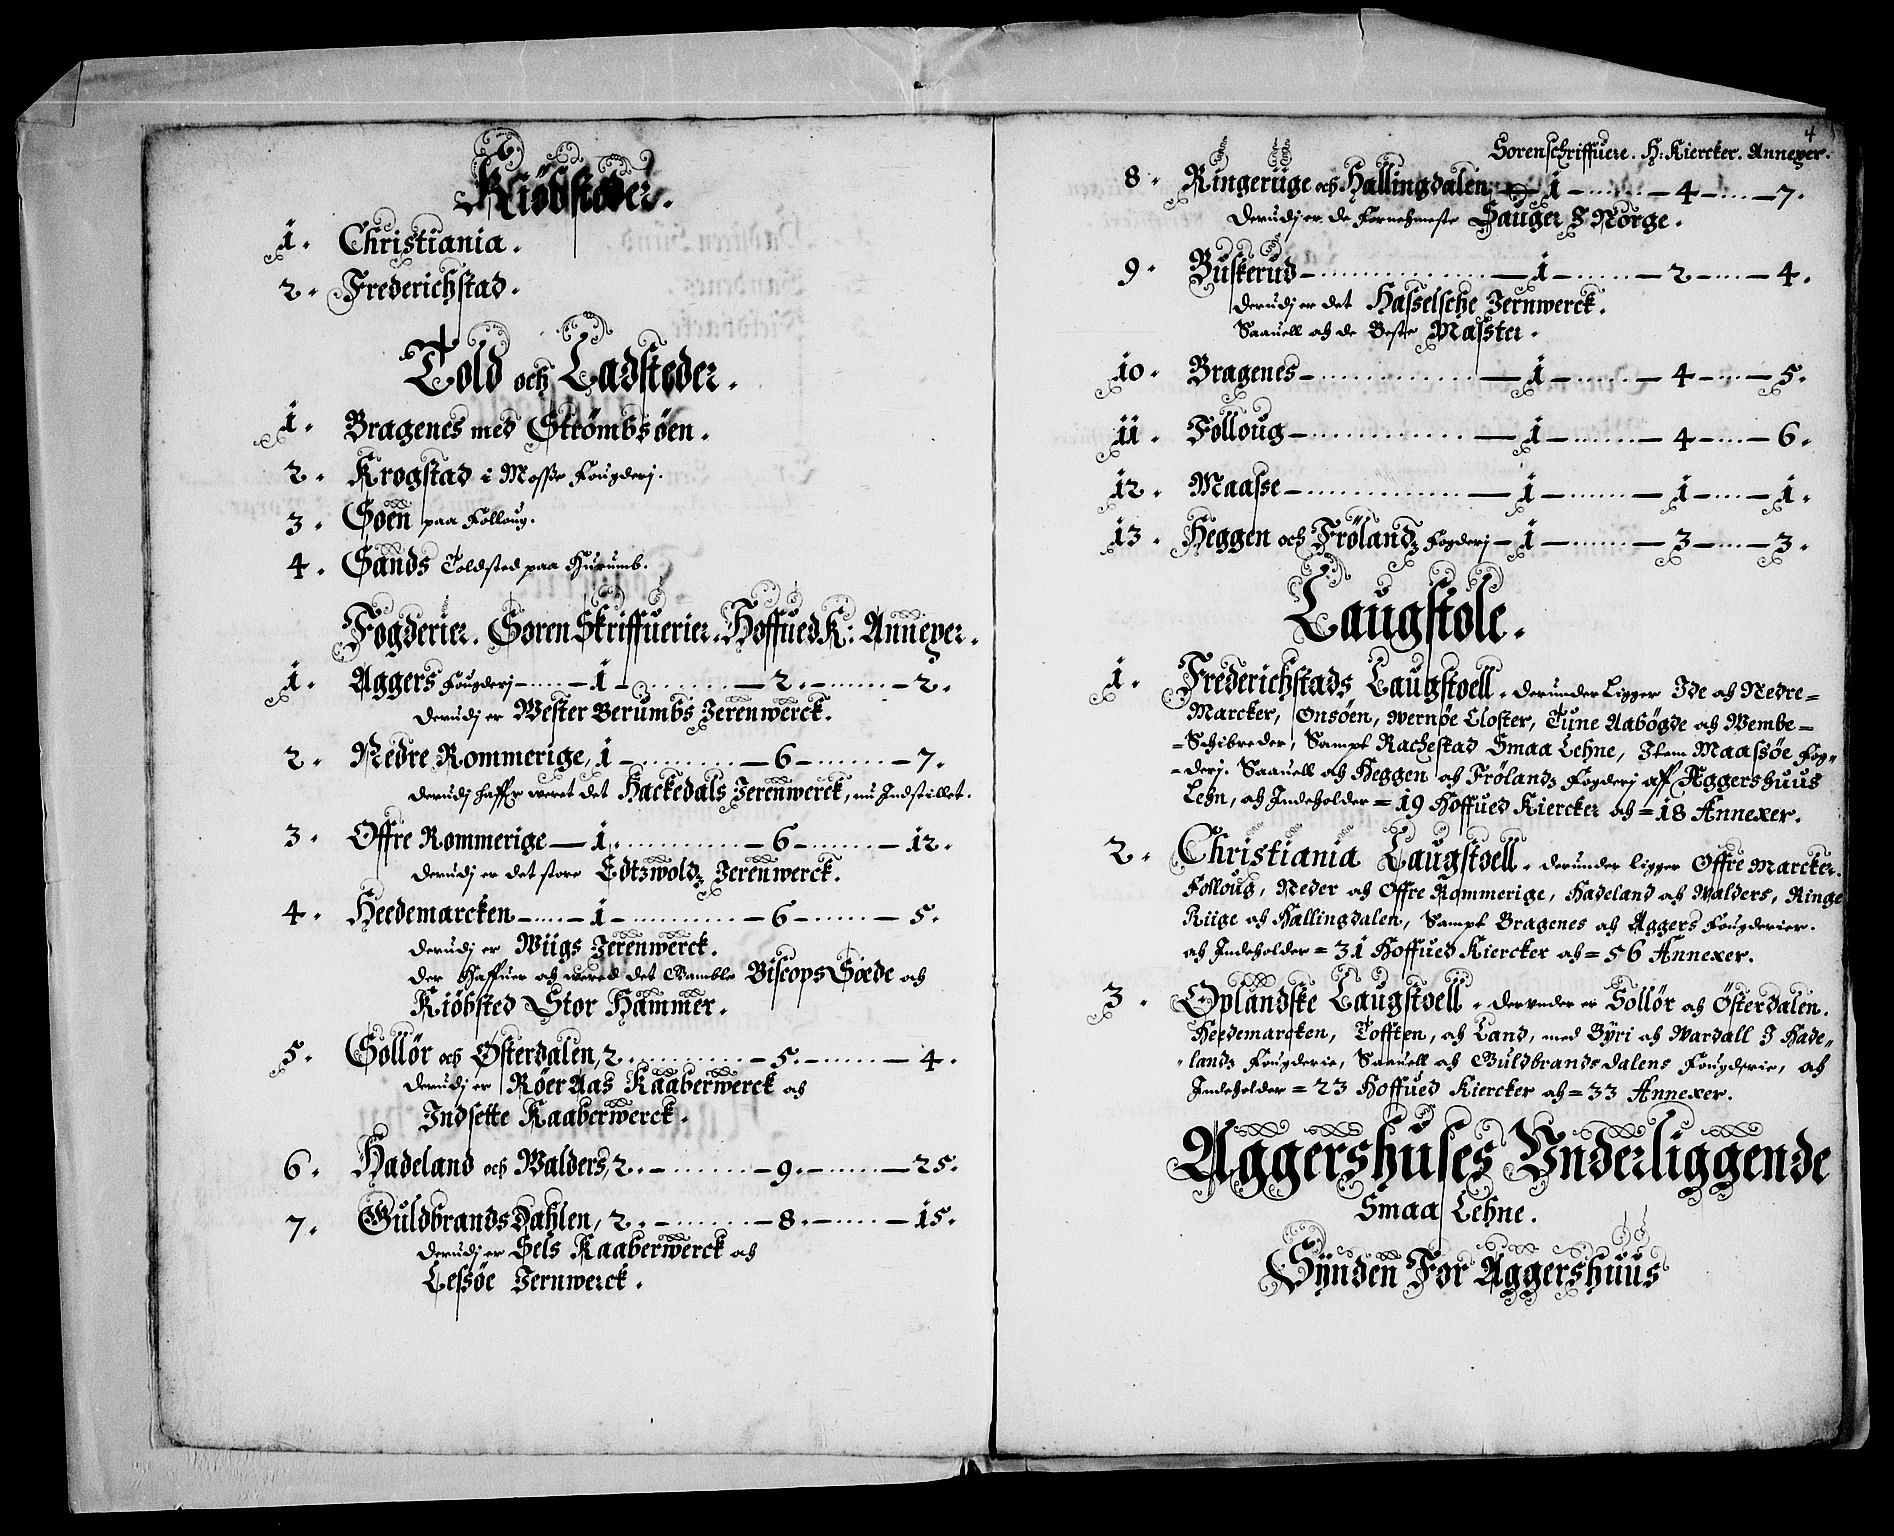 Kiöbsteder.
1. Christiania.
2. Frederichstad.
Told och Ladsteder.
1. Bragenes med Strömbsöen.
2. Krogstad i Mosse Fougderj.
3. Soen paa Folloug.
4. Sands Toldsted paa Hurumb.
Fogderier. Soren Skriffuerier. Hoffued K: Annexer.
1. Aggers Fougderj - 1 - 2. - 2.
derudj er Wester Berumbs Jerenwerck.
2. Nedre Rommerige, 1 - 6 - 7.
derudj haffr weret det Hackedals Jerenwerck, nu Indstillet.
3. Offre Rommerige - 1. - 6 - 12.
derudj er det store Edtzwoldz Jerenwerck.
4. Heedemarcken - 1 - 6 - 5.
derudj er Wiigs Jerenwerck.
der Haffuer och wered det Gamble Biscops Sæde och
Kiöbsted Stor Hammer.
5. Sollör och Østerdalen, 2. - 5. - 4.
derudj er Röer Aas Kaaberwerck och
Indsette Kaaberwerck.
6. Hadeland och Walders, 2. - 9. - 25.
7. Guldbrands Dahlen, 2. - 8. - 15.
derudj er Sels Kaaberwerck och
Lessöe Jernwerck.
4
Sorenschriffuere. H: Kiercker. Annexer.
8. Ringeriige och Hallingdalen - 1 - 4 - 7.
derudj er de Fornehmeste Sauger I Norge.
9. Buskerud - 1 - 2 - 4.
derudj er det Hasselsche Jernwerck.
Saauell och de Beste Master.
10. Bragenes - 1 - 4 - 5.
11. Folloug - 1 - 4 - 6.
12. Maasse - 1 - 1 - 1.
13. Heggen och Frölandz Fogderj - 1 - 3 - 3.
Laugstole.
1. Frederichstads Laugstoell. derunder Ligger Ide och Nedre=
Marcker, Onsöen, wernöe Closter, Tune Aabögde och Wembe=
=Schibreder, Sampt Rachestad Smaa Lehne, Item Maassöe Fog=
=derj. Saauell och Heggen och Frölandz Fogderj aff Aggershuus
Lehn, och Indeholder = 19 Hoffued Kiercker och = 18 Annexer.
2. Christiania Laugstoell. derunder ligger Offre Marcker.
Folloug, Neder och Offre Rommerige, Hadeland och Walders, Ringe
Riige och Hallingdalen, Sampt Bragenes och Aggers Fougderier.
och Indeholder = 31 Hoffued Kiercker och = 56 Annexer.
3. Oplandske Laugstoell. derunder er Sollör och Österdalen.
Heedemarcken, Tofften, och Land, med Byri och Wardall I Hade=
=landz Fougderie, Saauell och Guldbrandsdalens Fougderie, och
Indeholder = 23 Hoffued Kiercker och = 33 Annexer.
Aggershuses Underliggende
Smaa Lehne.
Synden For Aggershuus